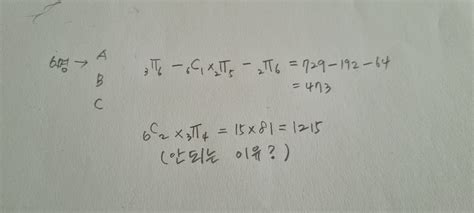 6명 → A
B
C
₃Π₆ - ₆C₁×₂Π₅ - ₂Π₆ = 729-192-64
= 473
₆C₂ × ₃Π₄ = 15×81 = 1215
(안되는 이유?)